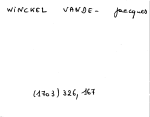 WINCKEL VANDE- Jacques
(1703) 326, 167